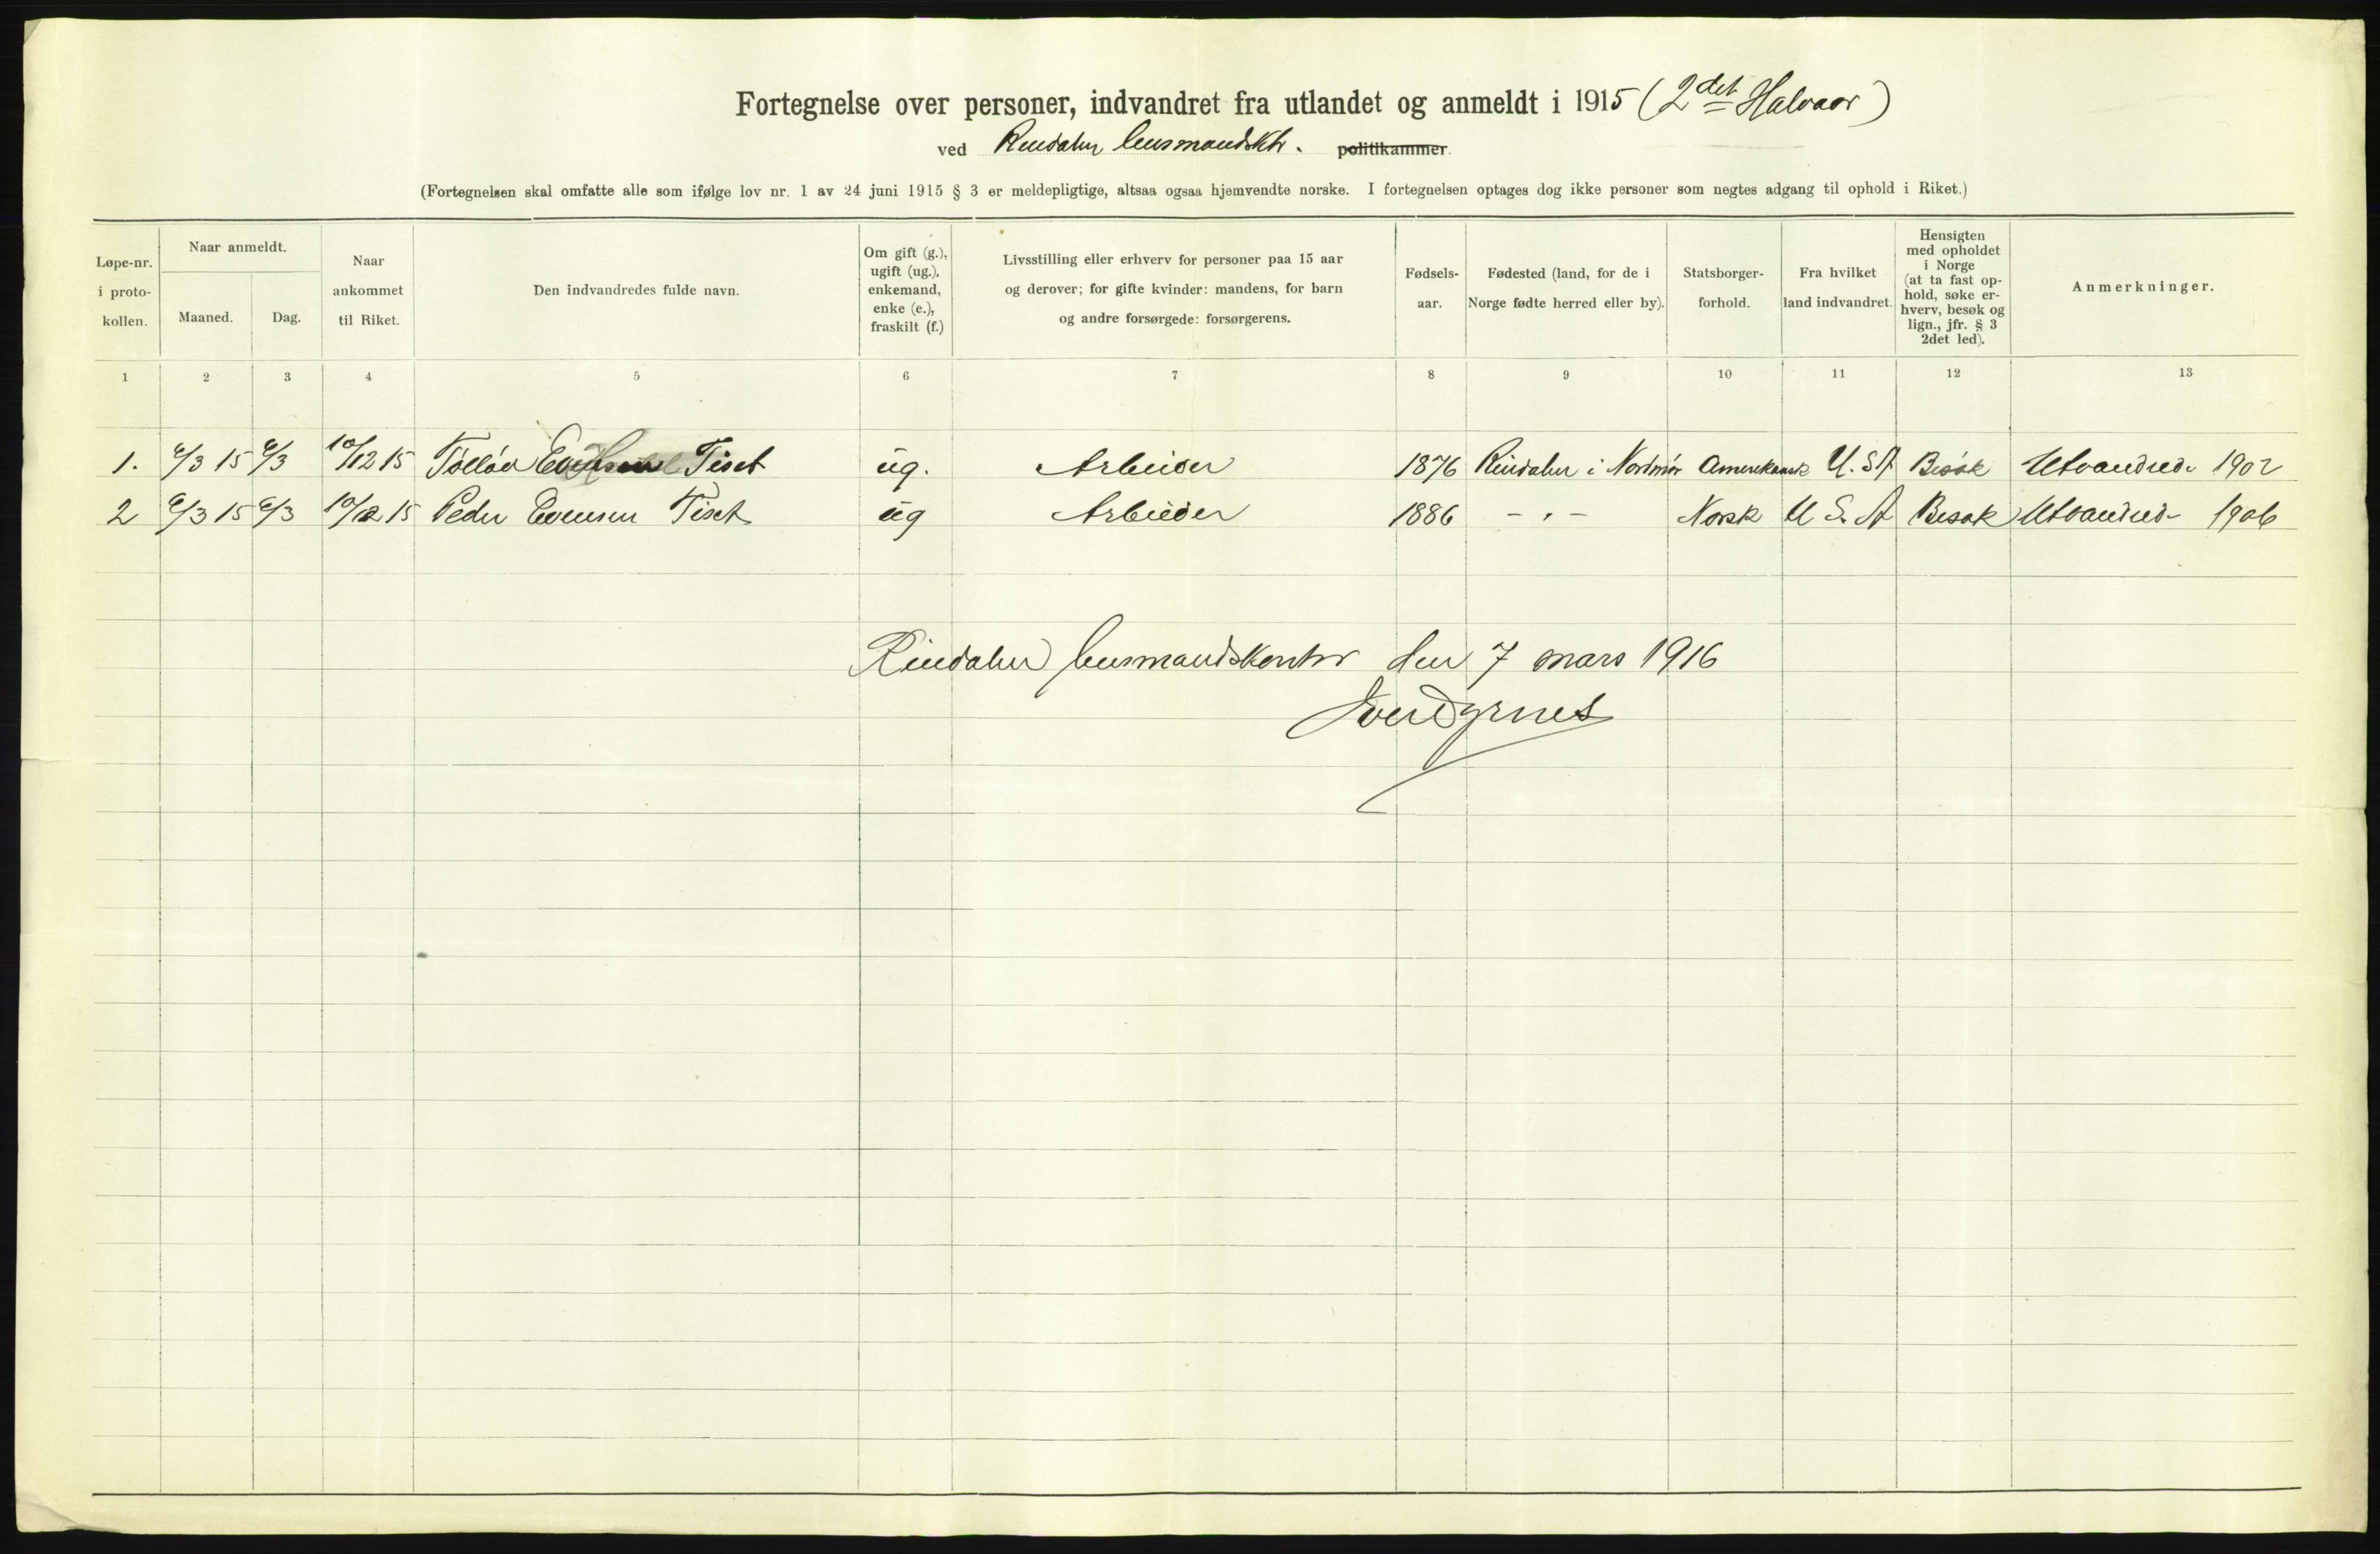 Fortegnelse over personer, indvandret fra utlandet og anmeldt i 1915 (2det Halvaar)
ved Rindalen lensmandsktr. politikammer.
(Fortegnelsen skal omfatte alle som ifølge lov nr. 1 av 24 juni 1915 § 3 er meldepligtige, altsaa ogsaa hjemvendte norske. I fortegnelsen optages dog ikke personer som negtes adgang til ophold i Riket.)
Løpe-nr.
i proto-
kollen.
Naar anmeldt.
Maaned.
Dag.
Naar
ankommet
til Riket.
Den indvandredes fulde navn.
Om gift (g.),
ugift (ug.),
enkemand,
enke (e.),
fraskilt (f.)
Livsstilling eller erhverv for personer paa 15 aar
og derover; for gifte kvinder: mandens, for barn
og andre forsørgede: forsørgerens.
Fødsels-
aar.
Fødested (land, for de i
Norge fødte herred eller by).
Statsborger-
forhold.
Fra hvilket
land indvandret.
Hensigten
med opholdet
i Norge
(at ta fast op-
hold, søke er-
hverv, besøk og
lign., jfr. § 3
2det led).
Anmerkninger.
1 2 3 4 5 6 7 8 9 10 11 12 13
1. 6/3 15 6/3 10/12 15 Tiset ug. Arbeider 1876 Rindalen i Nordmør Amerikansk U.S.A Besøk Utvandred 1902
2 6/3 15 6/3 10/12 15 Peder Evensen Tiset ug Arbeider 1886 - " - Norsk U S. A Besøk Utvandred 1906
Rindalen lensmandskontor den 7 mars 1916